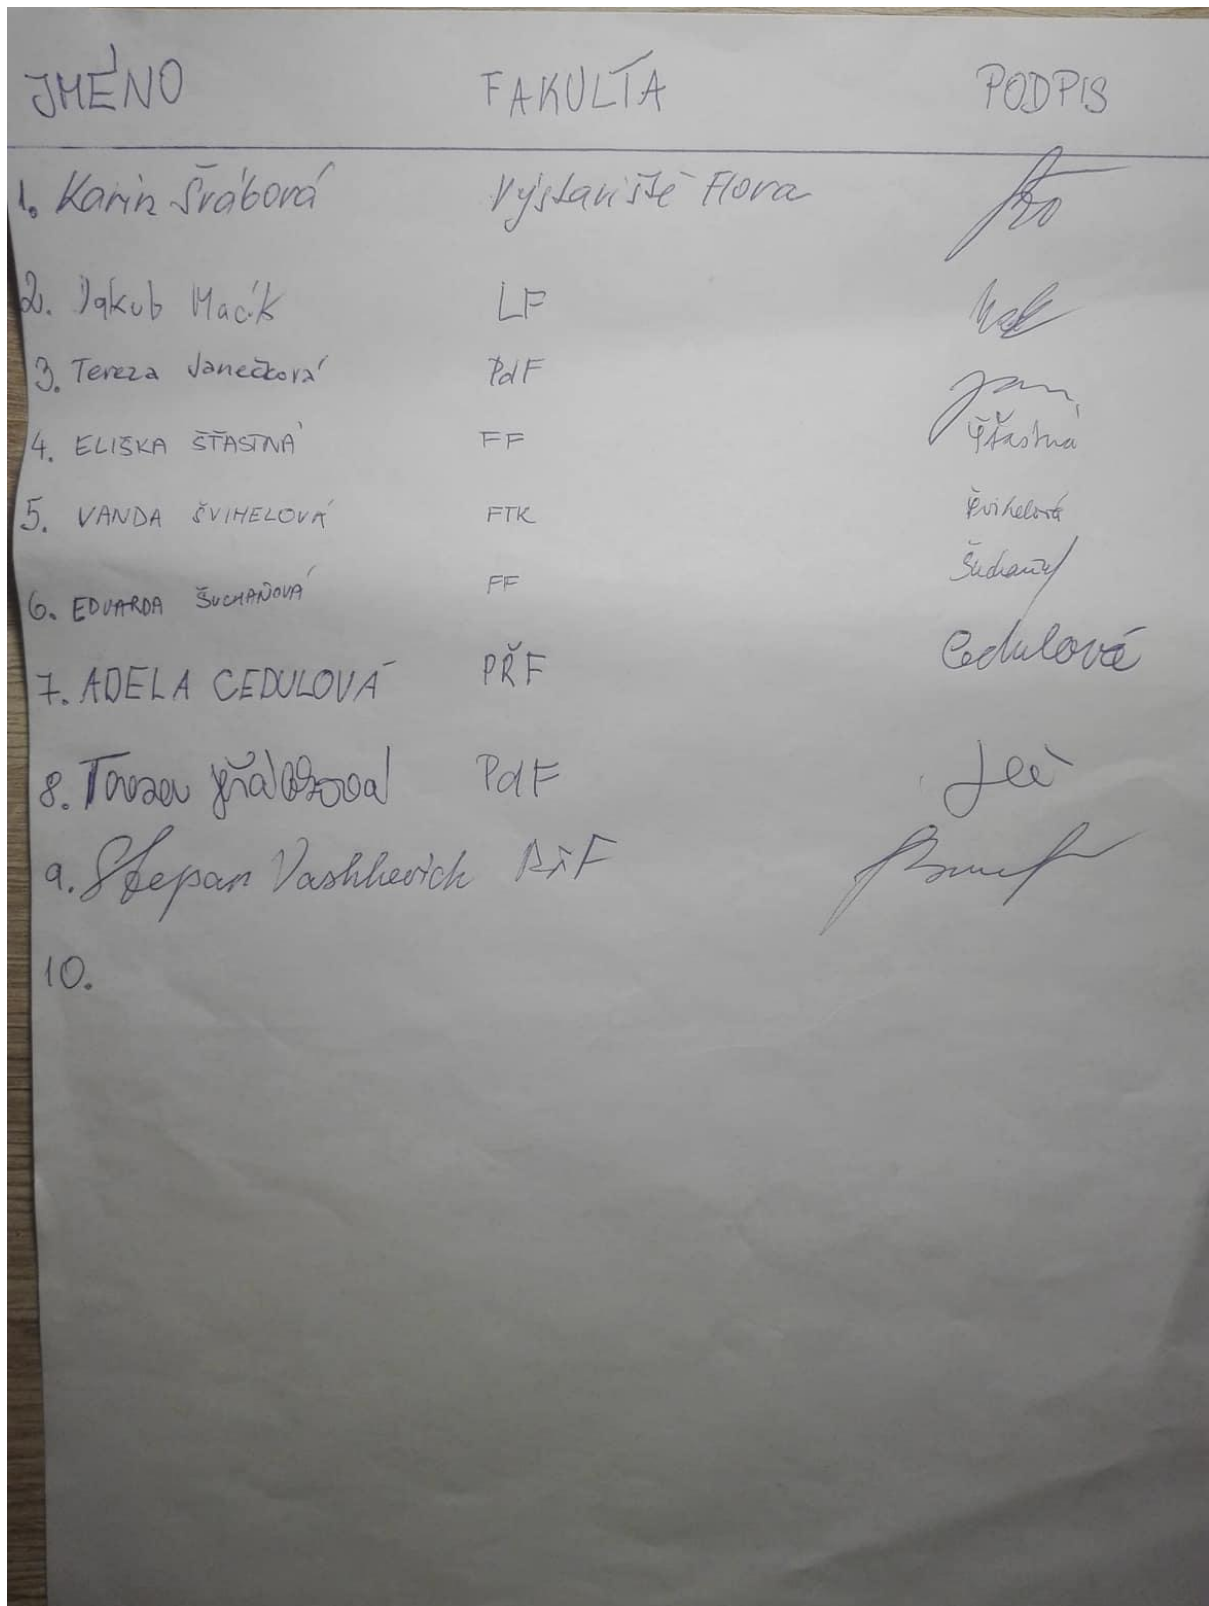 JMÉNO FAKULTA PODPIS
1. Karin Švábová Výstaviště Flora
2. Jakub Macík LF
3. Tereza Janečková PdF Jan
4. ELIŠKA ŠŤASTNÁ FF Šťastná
5. VANDA ŠVIHELOVÁ FTK Švihelová
6. EDUARDA ŠUCHAŇOVÁ FF
7. ADELA CEDULOVÁ PŘF Cedulová
8. PdF
9. Stepan Vashkevich PřF
10.